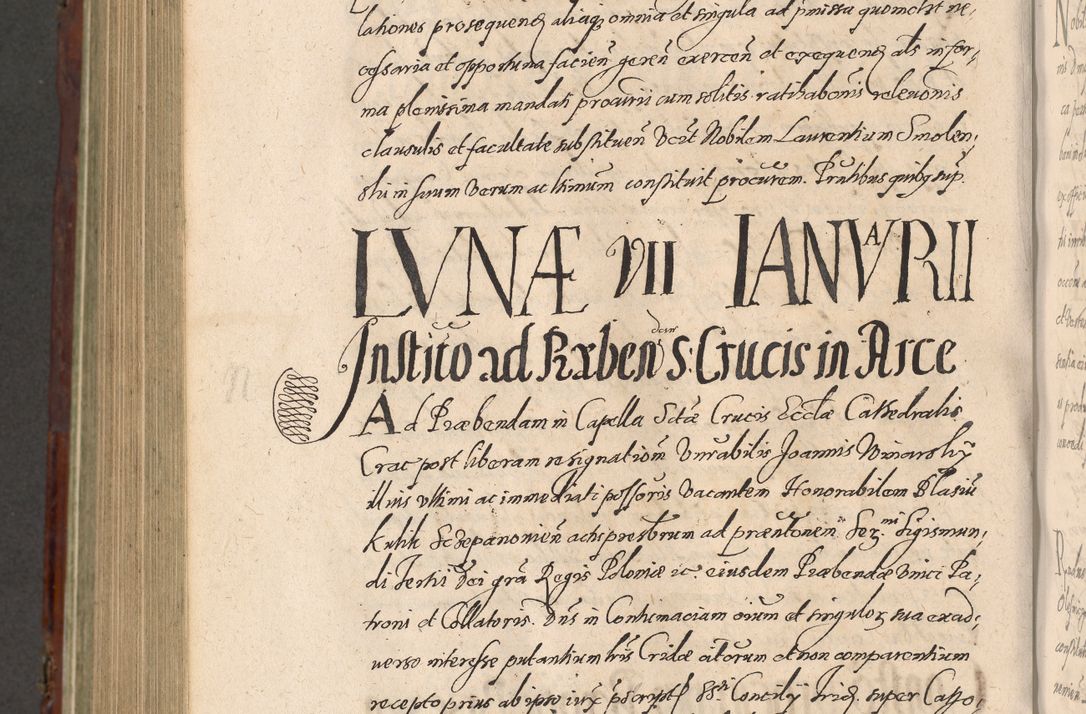 lationes prosequend aliaq omnia et singula ad pmissa quomolt ne,
cessaria et opportuna facien geren exercen et exequend als in for,
ma plenissima mandati procurii cum solitis ratihabonis relevonis
clausulis et facultate substituen Vocat Nobilem Laurentium Smolen,
ski in suum verum ac ltimum constituit procurem. Pruntibus quibq sup.
LVNÆ VII IANVARII
Institio ad Præbendam S. Crucis in Arce
Ad Præbendam in Capella Sctæ Crucis Ecclæ Cathedralis
Crac post liberam resignationem Vnrabilis Joannis Winarskÿ
illius vltimi ac immediati possoris vacantem Honorabilem Blasiu
Kulik Sczepanovien actu presbrum ad præntonem Ser.mi Sigismun,
di Tertii Dei gra Regis Poloniæ etc. eiusdem Præbendæ vnici Pa,
troni et Collatoris. Dns in Contumaciam oium et singulor sua exad,
verso interesse putantium lris Cridæ citorum et non comparentium
recepto prius ab ipso iurx pscript SSti Concilÿ Trid. super Casso,